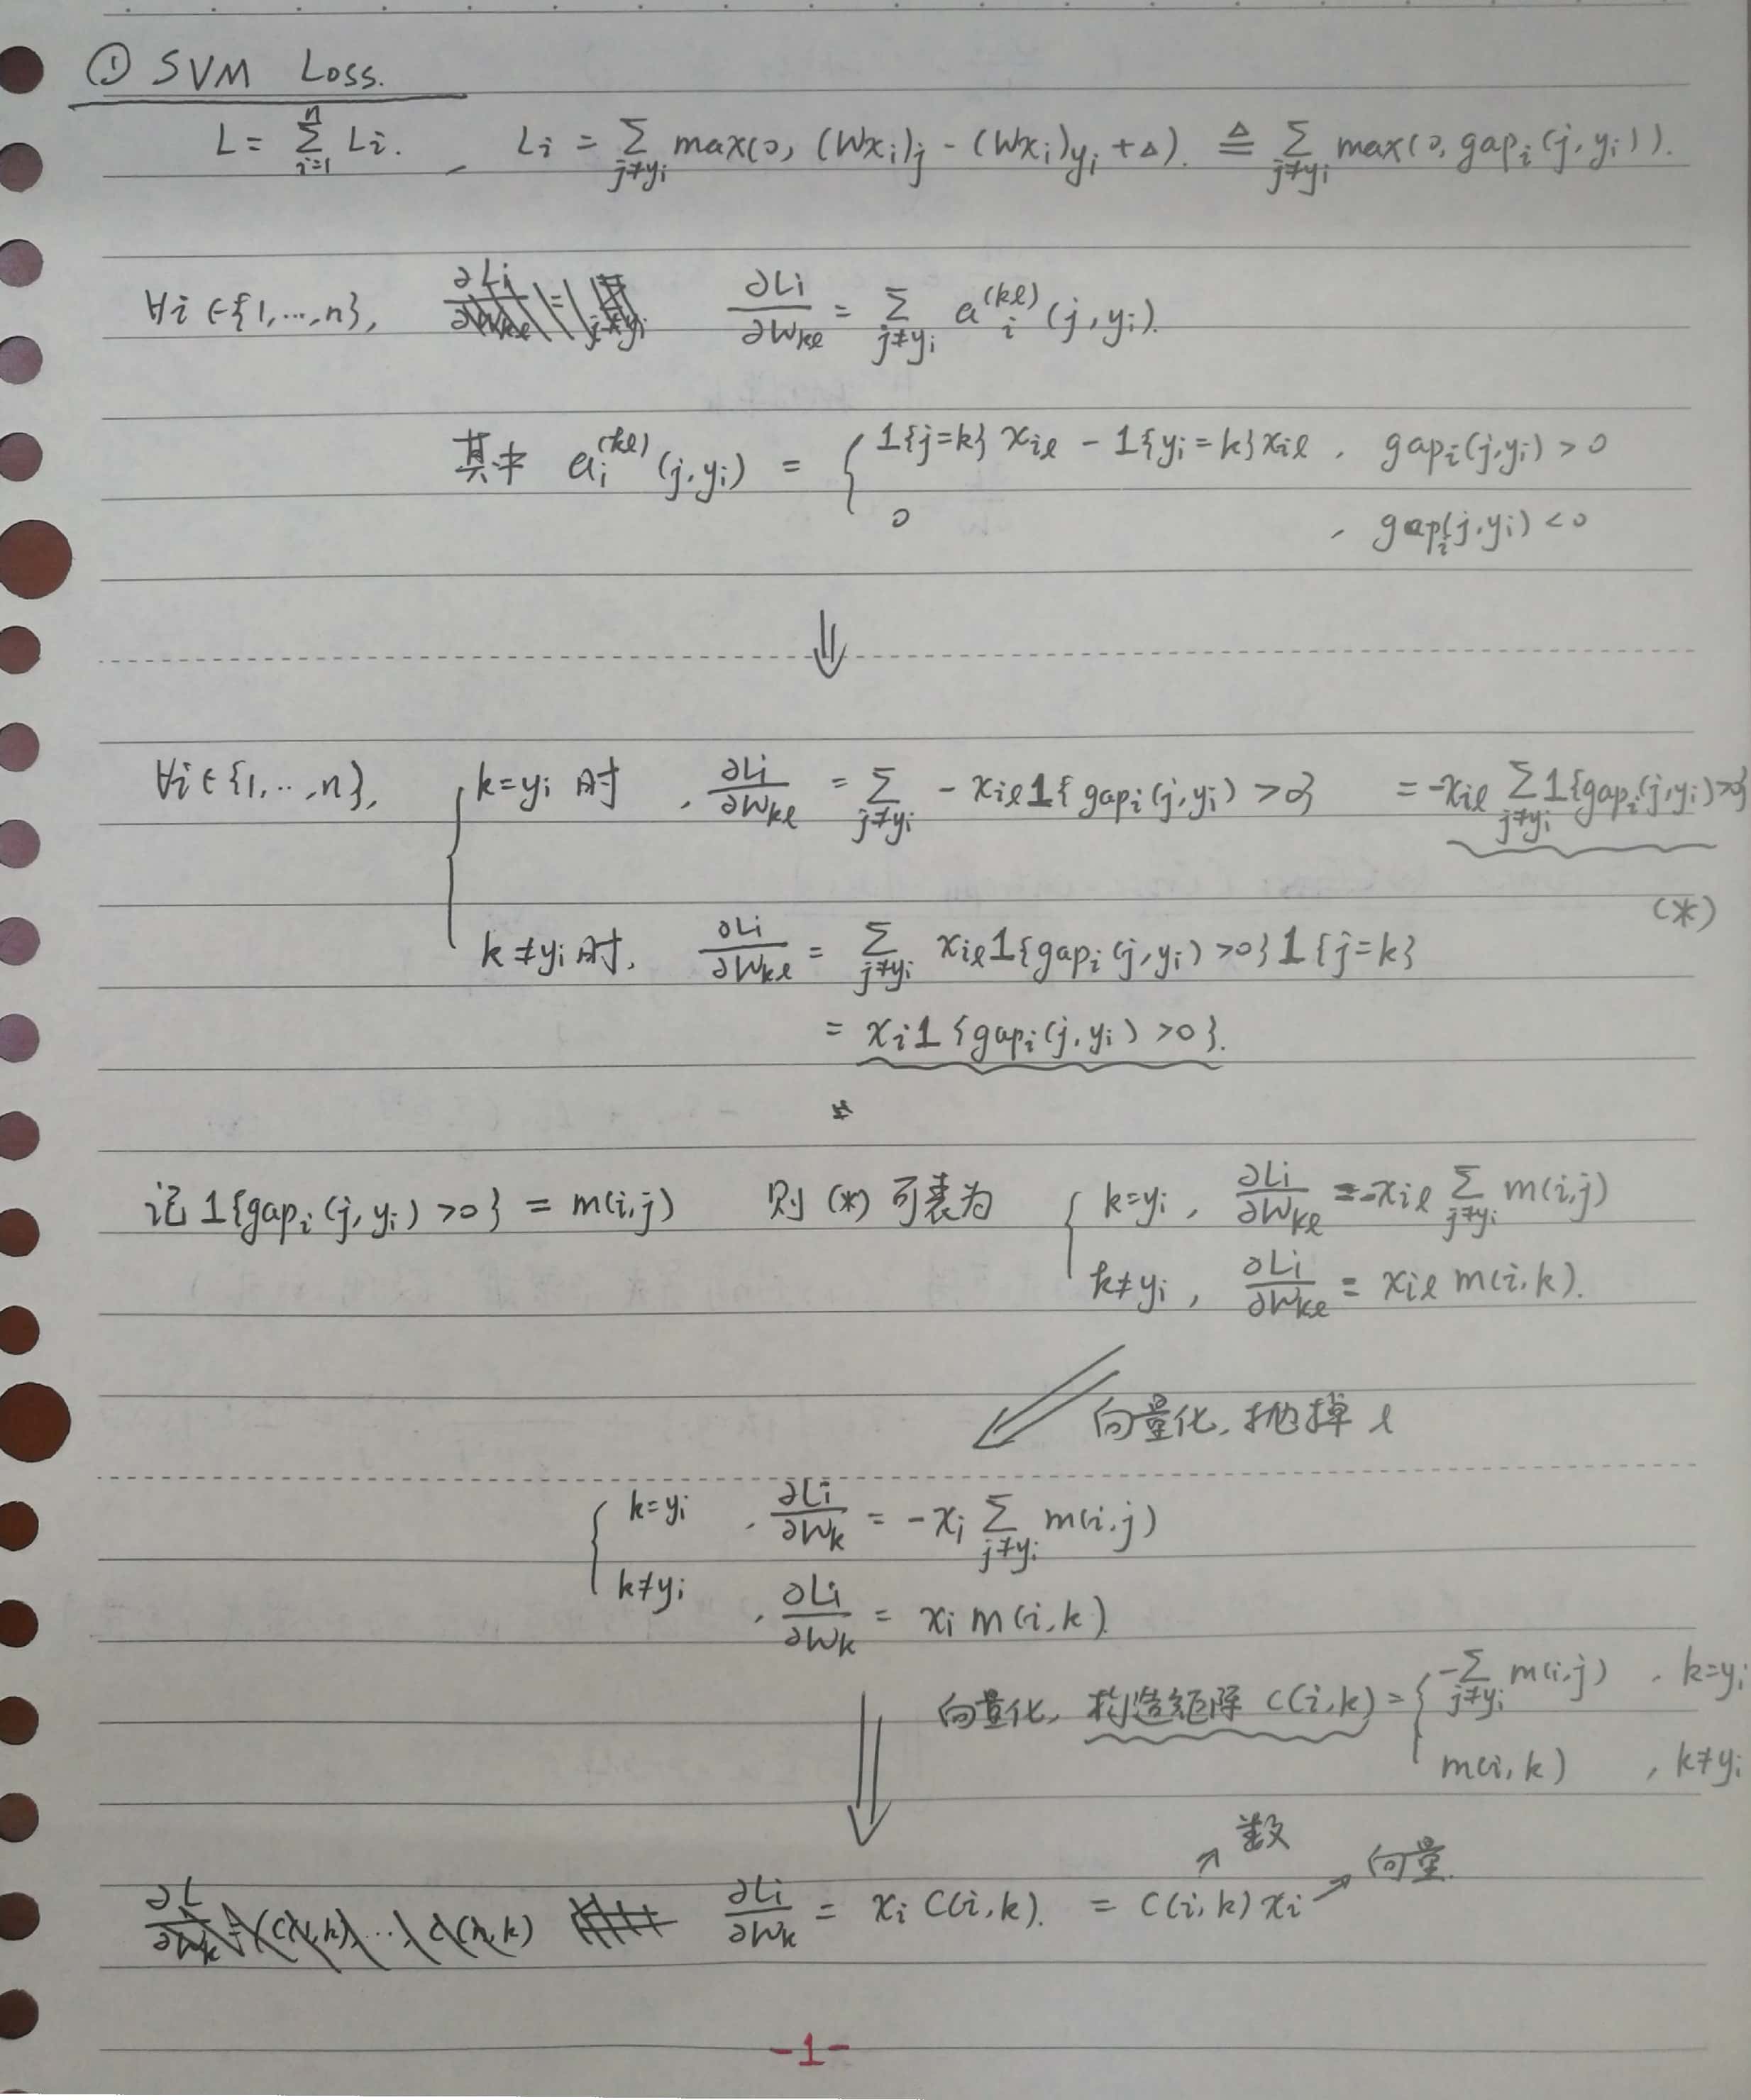 ① SVM Loss.
L = ∑_{i=1}^{n} Li. , Li = ∑_{j≠yi} max(0, (Wxi)j - (Wxi)yi + Δ). ≜ ∑_{j≠yi} max(0, gapi(j, yi)).
∀i∈{1,…,n}, ∂Li/∂Wkl = ∑_{j≠yi} ∂Li/∂Wkl = ∑_{j≠yi} a_i^{(kl)}(j, yi).
其中 a_i^{(kl)}(j, yi) = { 1{j=k} xil - 1{yi=k} xil , gapi(j, yi) > 0
0 , gapi(j, yi) < 0
⇓
∀i∈{1,..,n}, { k=yi 时 , ∂Li/∂Wkl = ∑_{j≠yi} - xil 1{gapi(j, yi) > 0} = -xil ∑_{j≠yi} 1{gapi(j, yi) > 0}
(*)
k≠yi 时, ∂Li/∂Wkl = ∑_{j≠yi} xil 1{gapi(j, yi) > 0} 1{j=k}
= xi 1{gapi(j, yi) > 0}.
记 1{gapi(j, yi) > 0} = m(i,j) 则 (*) 可表为 { k=yi , ∂Li/∂Wkl = -xil ∑_{j≠yi} m(i,j)
k≠yi , ∂Li/∂Wkl = xil m(i,k).
向量化, 抛掉 l
{ k=yi , ∂Li/∂Wk = -xi ∑_{j≠yi} m(i,j)
k≠yi , ∂Li/∂Wk = xi m(i,k).
向量化, 构造矩阵 C(i,k) = { -∑_{j≠yi} m(i,j) , k=yi
m(i,k) , k≠yi
⇓
数
向量.
∂L/∂Wk = (C(1,k), …, C(n,k) ∂Li/∂Wk = xi C(i,k). = C(i,k) xi
-1-